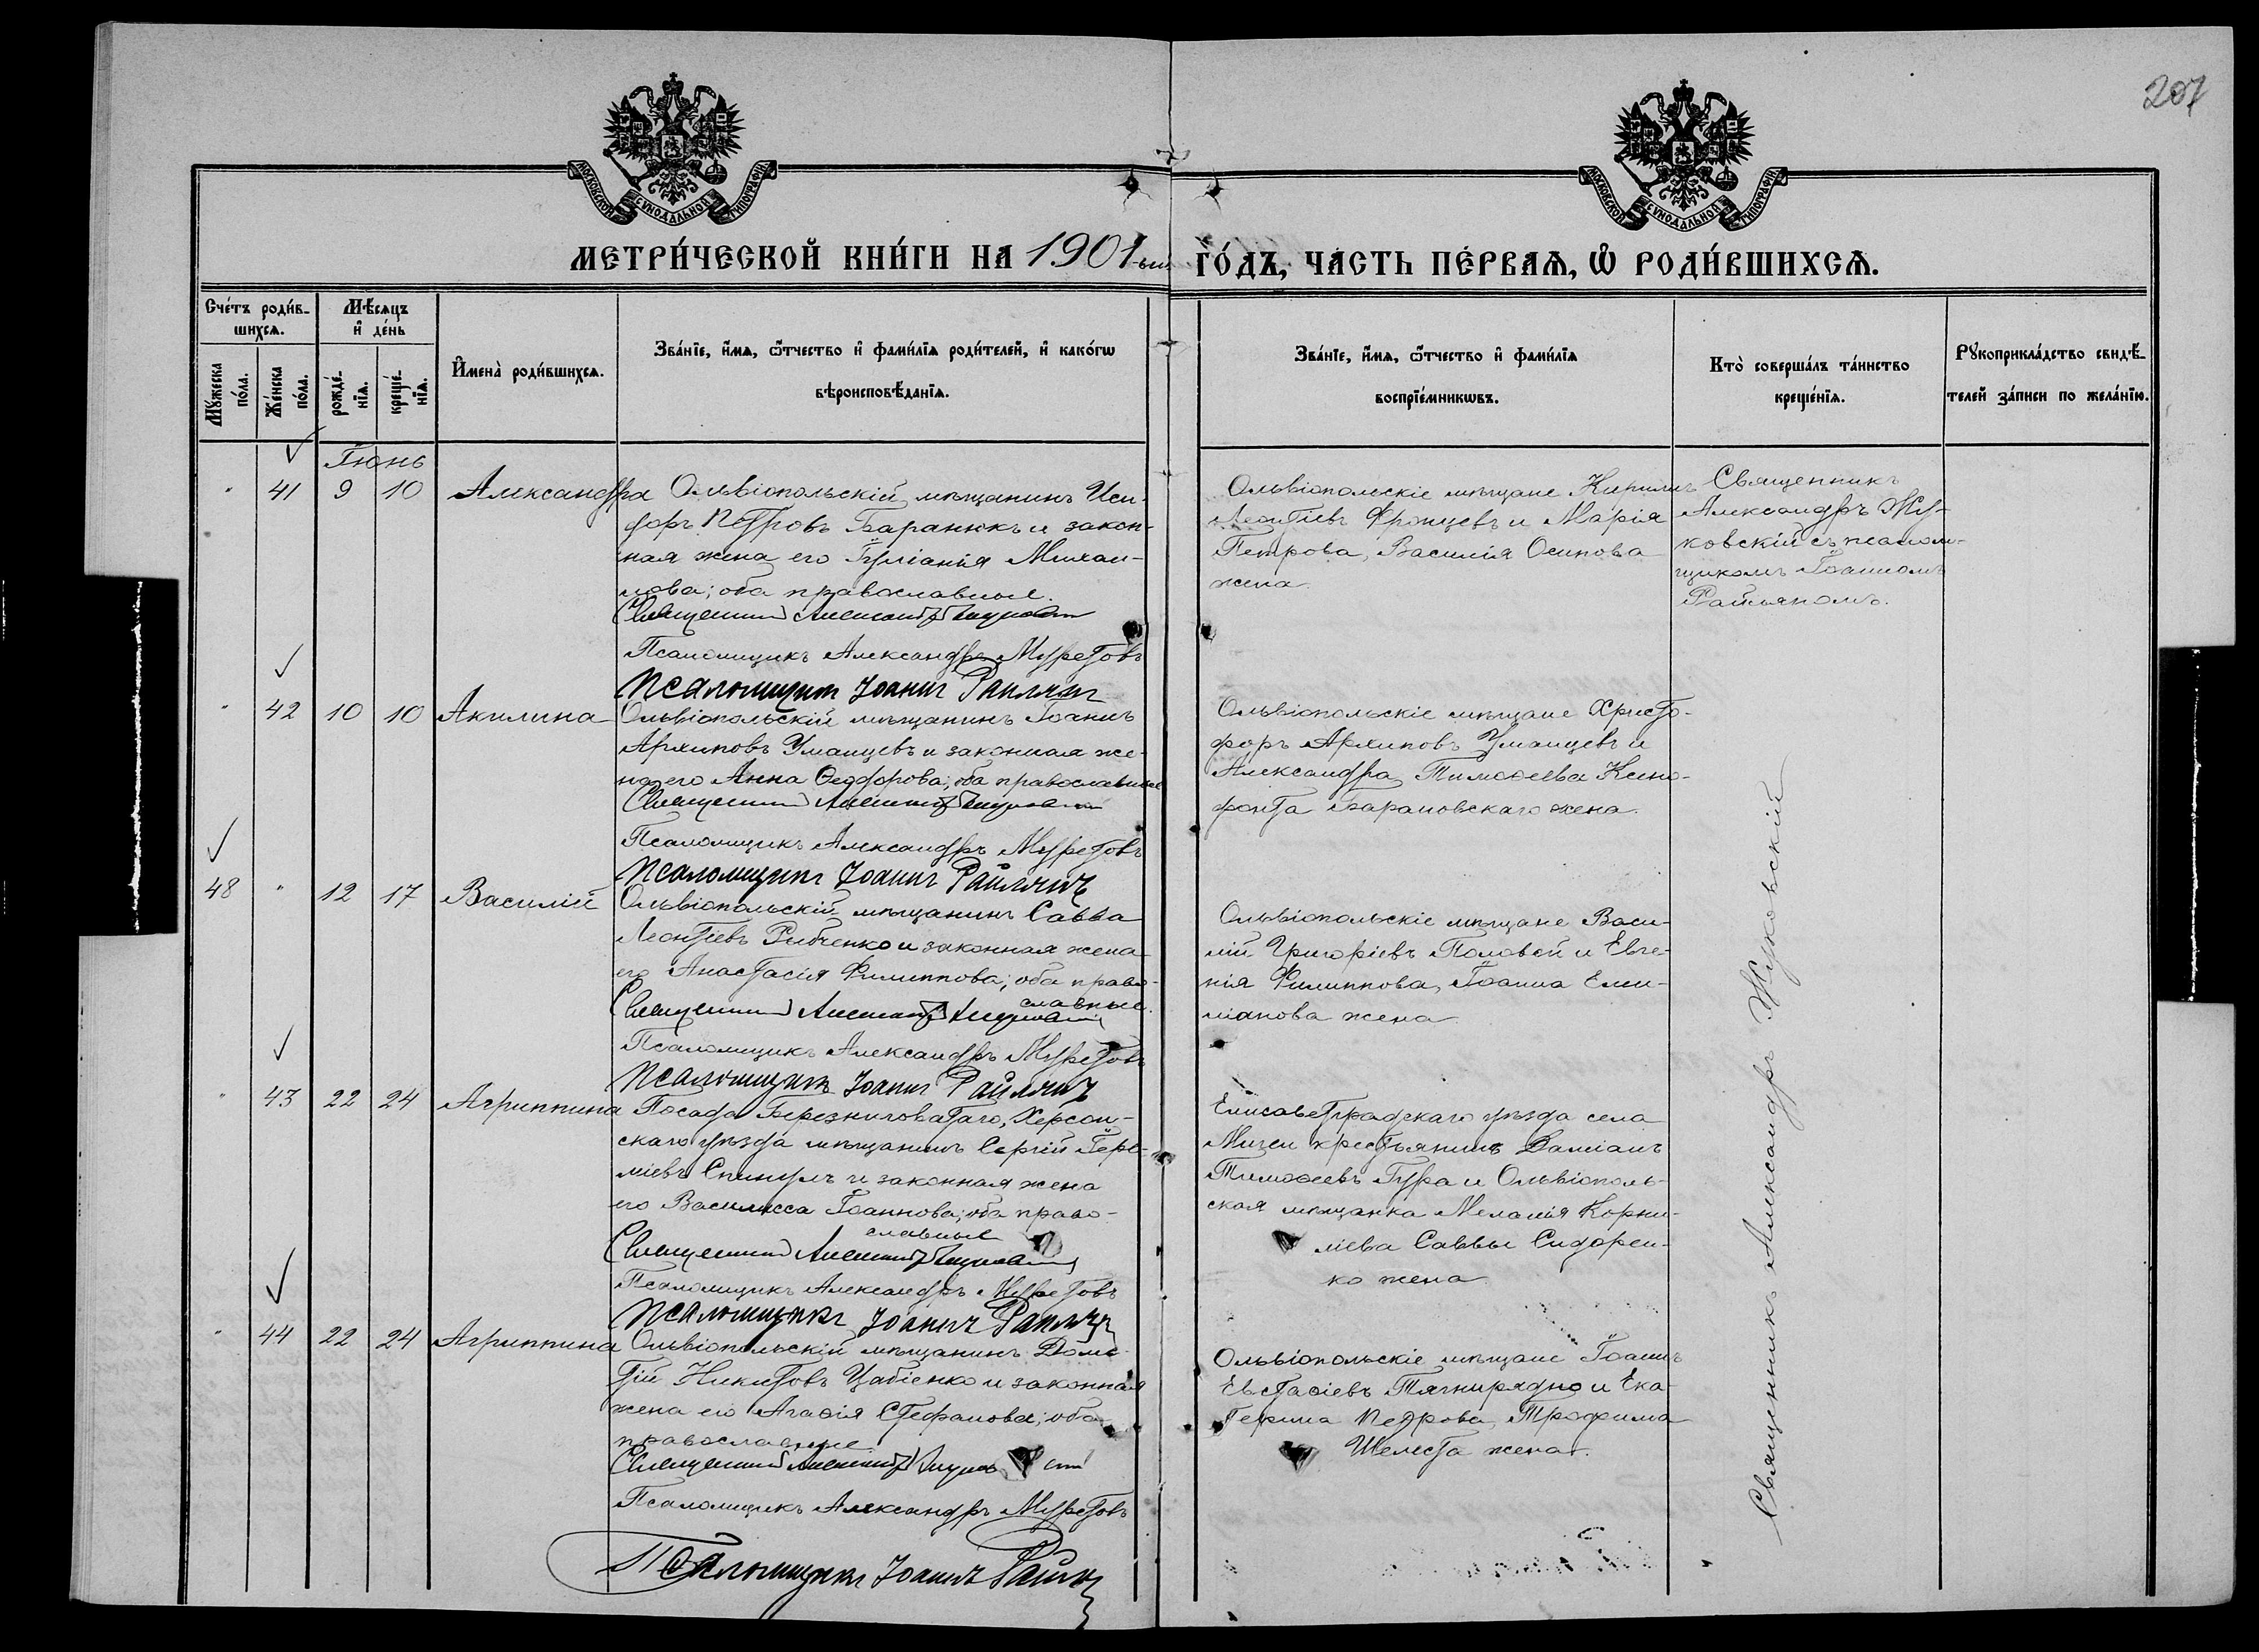 207
МОСКОВСКОЙ СѴНОДАЛЬНОЙ ТИПОГРАФІИ
МОСКОВСКОЙ СѴНОДАЛЬНОЙ ТИПОГРАФІИ
МЕТРИ́ЧЕСКОЙ КНИ́ГИ НА 1901-ый ГО́ДЪ, ЧА́СТЬ ПЕ́РВАѦ, Ѽ РОДИ́ВШИХСѦ.
Сче́тъ роди́в-
шихсѧ.
Мꙋ́жеска
по́ла.
Же́нска
по́ла.
Мѣ́сѧцъ
и҆ де́нь
рожде́-
нїѧ.
креще́-
нїѧ.
И҆мена̀ роди́вшихсѧ.
Зва́нїе, и҆́мѧ, ѻ҆́тчество и҆ фами́лїѧ роди́телей, и҆ како́гѡ
вѣроисповѣ́данїѧ.
Зва́нїе, и҆́мѧ, ѻ҆́тчество и҆ фами́лїѧ
воспрїе́мникѡвъ.
Кто̀ соверша́лъ та́инство
креще́нїѧ.
Рꙋкоприкла́дство свидѣ́-
телей за́писи по жела́нїю.
Іюнь
" 41 9 10 Александра
Ольвіопольскій мѣщанинъ Иси-
доръ Петровъ Баранюкъ и закон-
ная жена его Іуліанія Михаи-
лова; оба православные.
Священникъ Александръ Жуковскій
Псаломщикъ Александръ Муретовъ
Псаломщикъ Іоаннъ Райлянъ
Ольвіопольскіе мѣщане Кириллъ
Леонтіевъ Фронцевъ и Марія
Петрова, Василія Осипова
жена.
Священникъ
Александръ Жу-
ковскій съ псалом-
щикомъ Іоанномъ
Райляномъ.
" 42 10 10 Акилина
Ольвіопольскій мѣщанинъ Іоаннъ
Архиповъ Уманцевъ и законная же-
на его Анна Ѳеодорова; оба православные
Священникъ Александръ Жуковскій
Псаломщикъ Александръ Муретовъ
Псаломщикъ Іоаннъ Райлянъ
Ольвіопольскіе мѣщане Христо-
форъ Архиповъ Уманцевъ и
Александра Тимоѳеева Ксено-
фонта Барановскаго жена.
48 " 12 17 Василій
Ольвіопольскій мѣщанинъ Савва
Леонтіевъ Рибченко и законная жена
его Анастасія Филиппова; оба право-
славные.
Священникъ Александръ Жуковскій
Псаломщикъ Александръ Муретовъ
Псаломщикъ Іоаннъ Райлянъ
Ольвіопольскіе мѣщане Васи-
лій Григоріевъ Половой и Евге-
нія Филиппова, Іоанна Еми-
ліанова жена
" 43 22 24 Агриппина
Посада Березниговатаго, Херсон-
скаго уѣзда мѣщанинъ Сергій Іере-
міевъ и законная жена
его Василисса Іоаннова; оба право-
славные
Священникъ Александръ Жуковскій
Псаломщикъ Александръ Муретовъ
Псаломщикъ Іоаннъ Райлянъ
Елисаветградскаго уѣзда села
Мигеи крестьянинъ Даміанъ
Тимоѳеевъ Гура и Ольвіополь-
ская мѣщанка Меланія Корни-
ліева Саввы Сидорен-
ко жена
" 44 22 24 Агриппина
Ольвіопольскій мѣщанинъ Доме-
тій Никитовъ Цабіенко и законная
жена его Агаѳія Стефанова; оба
православные.
Священникъ Александръ Жуковскій
Псаломщикъ Александръ Муретовъ
Псаломщикъ Іоаннъ Райлянъ
Ольвіопольскіе мѣщане Іоаннъ
Евстаѳіевъ Тягнирядно и Ека-
терина Петрова, Трофима
Шелеста жена.
Священникъ Александръ Жуковскій